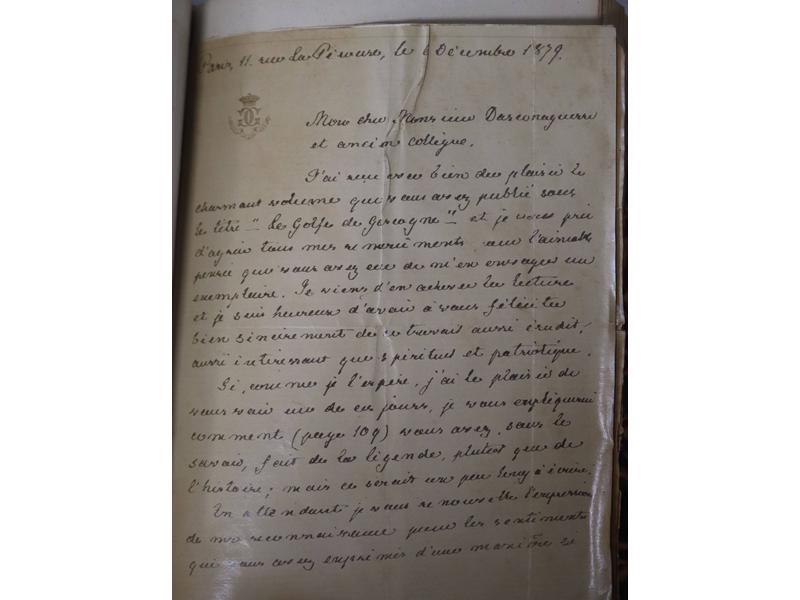 Paris, 11. rue La Pérouse, le 6 Décembre 1879.
Mon cher Monsieur Dasconaguerre
et ancien collègue.
J'ai reçu avec bien du plaisir le
charmant volume que vous avez publié sous
le titre "Le Golfe de Gascogne" et je vous prie
d'agréer tous mes remerciments pour l'aimable
pensée que vous avez eue de m'en envoyer un
exemplaire. Je viens d'en achever la lecture
et je suis heureux d'avoir à vous féliciter
bien sincèrement de ce travail aussi érudit,
aussi intéressant que spirituel et patriotique.
Si, comme je l'espère, j'ai le plaisir de
vous voir un de ces jours, je vous expliquerai
comment (page 109) vous avez, sans le
savoir, fait de la légende, plutôt que de
l'histoire; mais ce serait un peu long à écrire.
En attendant je vous renouvelle l'expression
de ma reconnaissance pour les sentiments
que vous avez exprimés d'une manière si